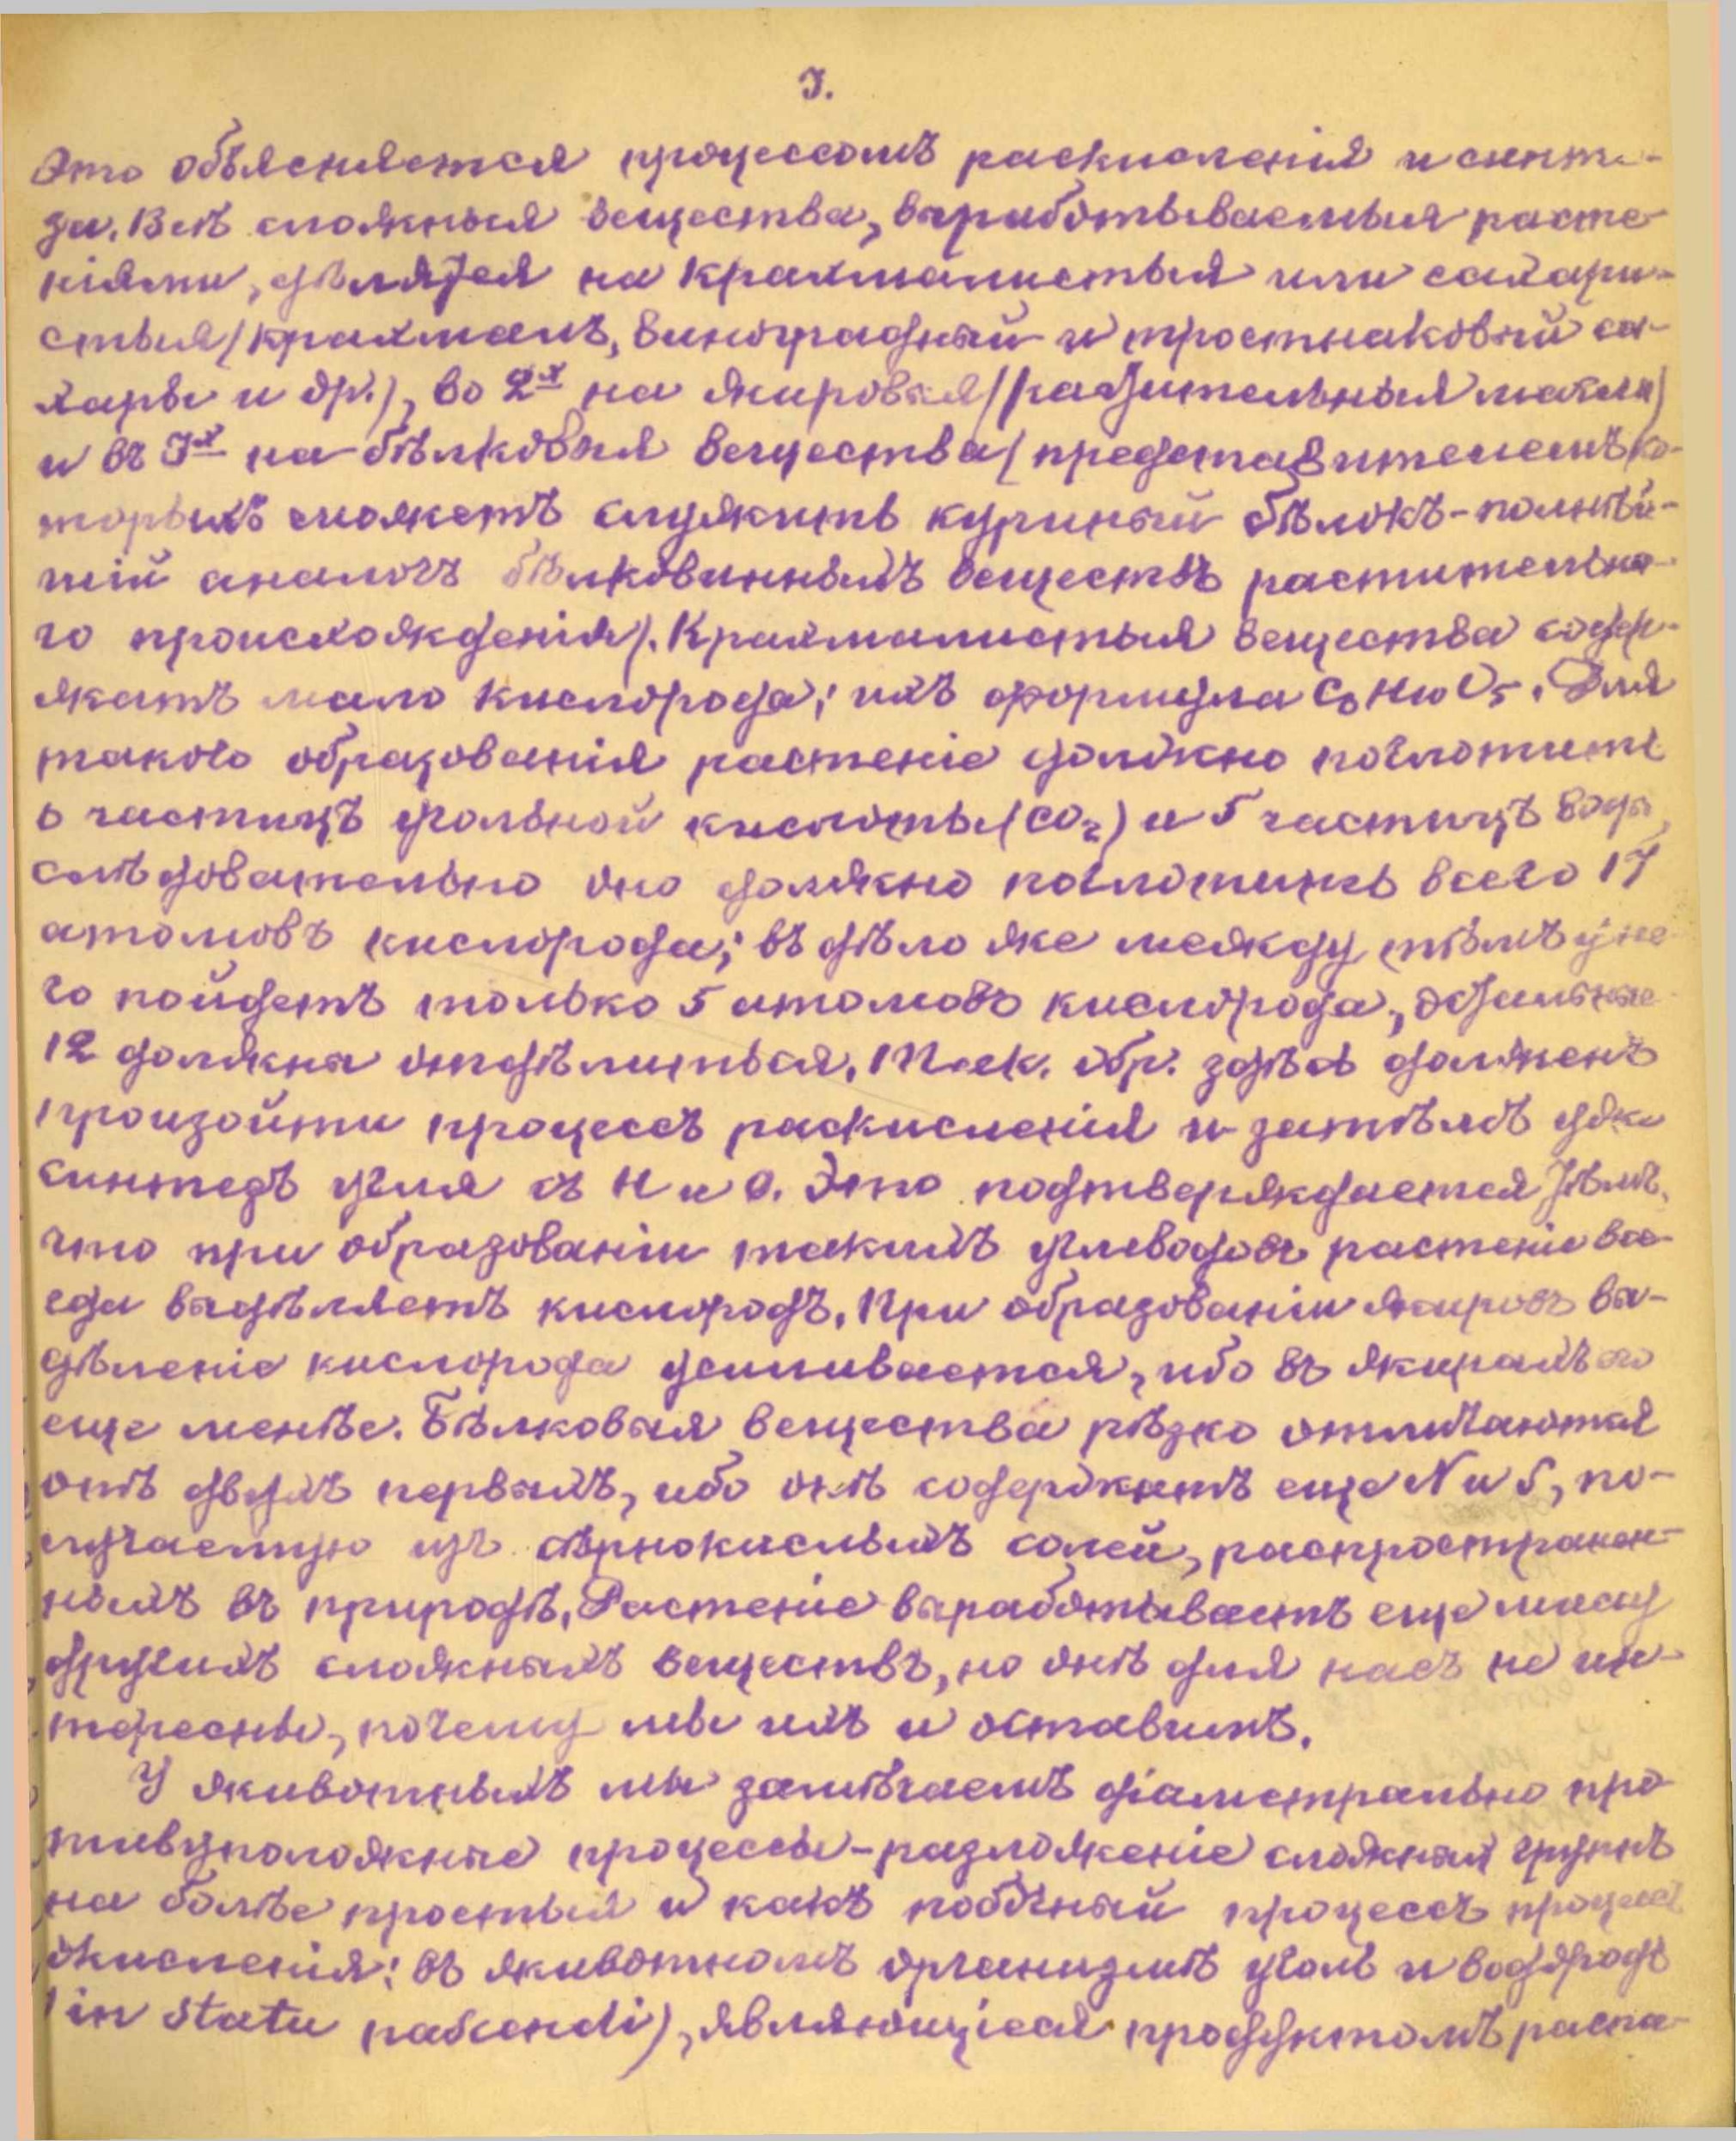 3.
Это объясняется процессомъ раскисленія и синте-
за. Всѣ сложныя вещества, вырабатываемыя расте-
ніями, дѣлятся на крахмалистыя или сахари-
стыя (крахмалъ, виноградный и тростниковый са-
хары и др.), во 2х на жировыя (растительныя масла)
и въ 3х на бѣлковыя вещества (представителемъ ко-
торыхъ можетъ служить куриный бѣлокъ - полнѣй-
шій аналогъ бѣлковинныхъ веществъ растительна-
го происхожденія). Крахмалистыя вещества содер-
жатъ мало кислорода; ихъ формула C6H10O5. Для
такого образованія растеніе должно поглотить
6 частицъ угольной кислоты (CO2) и 5 частицъ воды,
слѣдовательно оно должно поглотить всего 17
атомовъ кислорода; въ дѣло же между тѣмъ у не-
го пойдетъ только 5 атомовъ кислорода, остальные
12 должны отдѣлиться. Так. обр. здѣсь долженъ
произойти процессъ раскисленія и затѣмъ уже
синтезъ угля съ H и O. Это подтверждается тѣмъ,
что при образованіи такихъ углеводовъ растеніе все-
гда выдѣляетъ кислородъ. При образованіи жировъ вы-
дѣленіе кислорода усиливается, ибо въ жирахъ его
еще менѣе. Бѣлковыя вещества рѣзко отличаются
отъ двухъ первыхъ, ибо онѣ содержатъ еще N и S, по-
лучаемую изъ сѣрнокислыхъ солей, распространен-
ныхъ въ природѣ. Растеніе вырабатываетъ еще массу
другихъ сложныхъ веществъ, но онѣ для насъ не ин-
тересны, почему мы ихъ и оставимъ.
У животныхъ мы замѣчаемъ діаметрально про-
тивуположные процессы - разложеніе сложныхъ группъ
на болѣе простыя и какъ побочный процессъ процессъ
окисленія: въ животномъ организмѣ уголь и водородъ
(in statu nascendi), являющіеся продуктомъ распа-